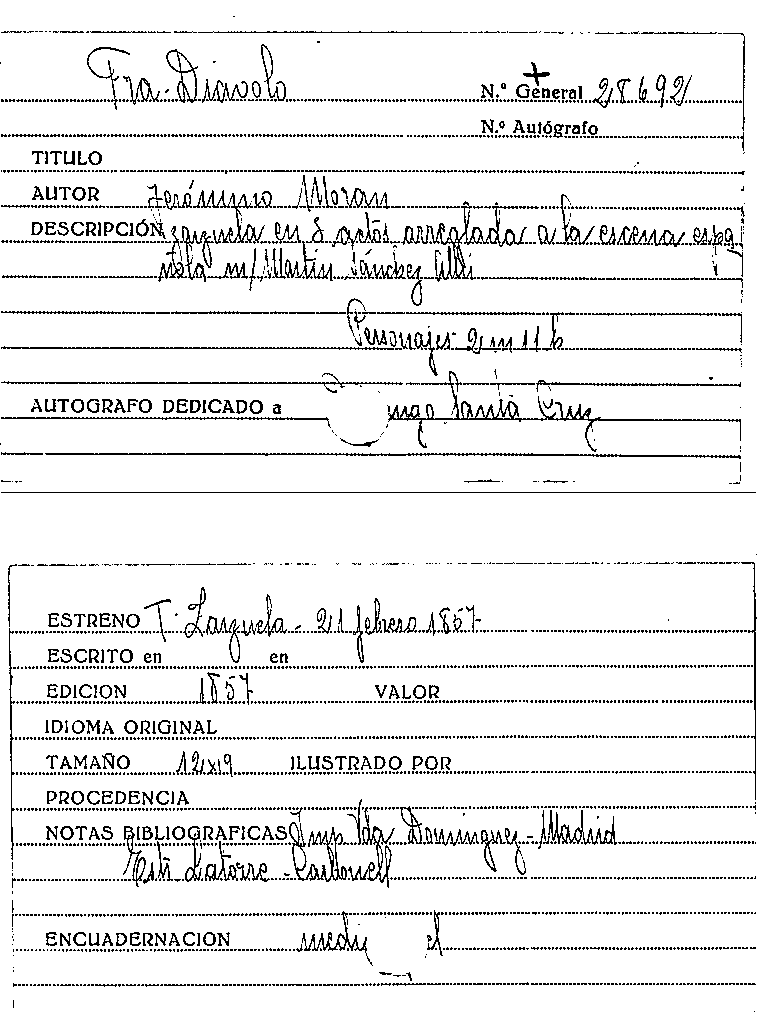 Fra-Diavolo
N.º General 28692
N.º Autógrafo
TITULO
AUTOR Jerónimo Moran
DESCRIPCIÓN Zarzuela en 3 actos arreglada a la escena espa
ñola m/ Martin Sánchez Allú
Personajes 2 m 11 h
AUTOGRAFO DEDICADO a Santa Cruz
ESTRENO T. Zarzuela - 21 febrero 1857
ESCRITO en en
EDICION 1857 VALOR
IDIOMA ORIGINAL
TAMAÑO 12x19 ILUSTRADO POR
PROCEDENCIA
NOTAS BIBLIOGRAFICAS Imp. Vda Dominguez - Madrid
Latorre - Carbonell
ENCUADERNACION